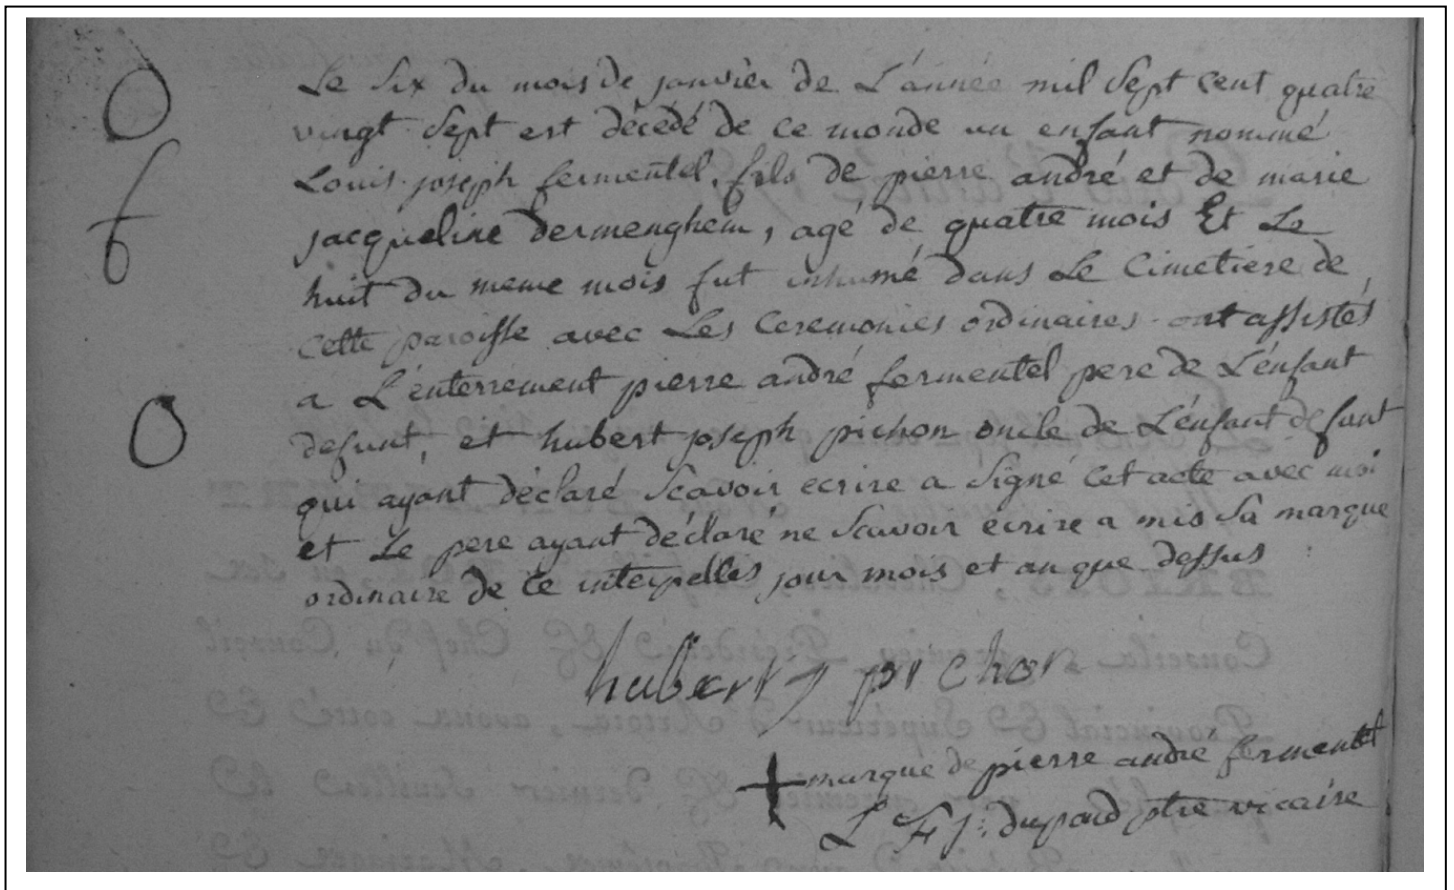 Le six du mois de janvier de L'année mil sept cent quatre
vingt sept est décédé de ce monde un enfant nommé
Louis joseph fermentel, fils de pierre andré et de marie
jacqueline dermenghem, agé de quatre mois Et Le
huit du meme mois fut inhumé dans Le Cimetiere de
cette paroisse avec Les Ceremonies ordinaires ont assistés
a L'enterrement pierre andré fermentel pere de L'enfant
defunt, et hubert joseph pichon oncle de L'enfant defunt
qui ayant déclaré scavoir ecrire a signé cet acte avec moi
et Le pere ayant déclaré ne scavoir ecrire a mis sa marque
ordinaire de ce interpellés jour mois et an que dessus
hubert j pichon
marque de pierre andré fermentel
ptre vicaire